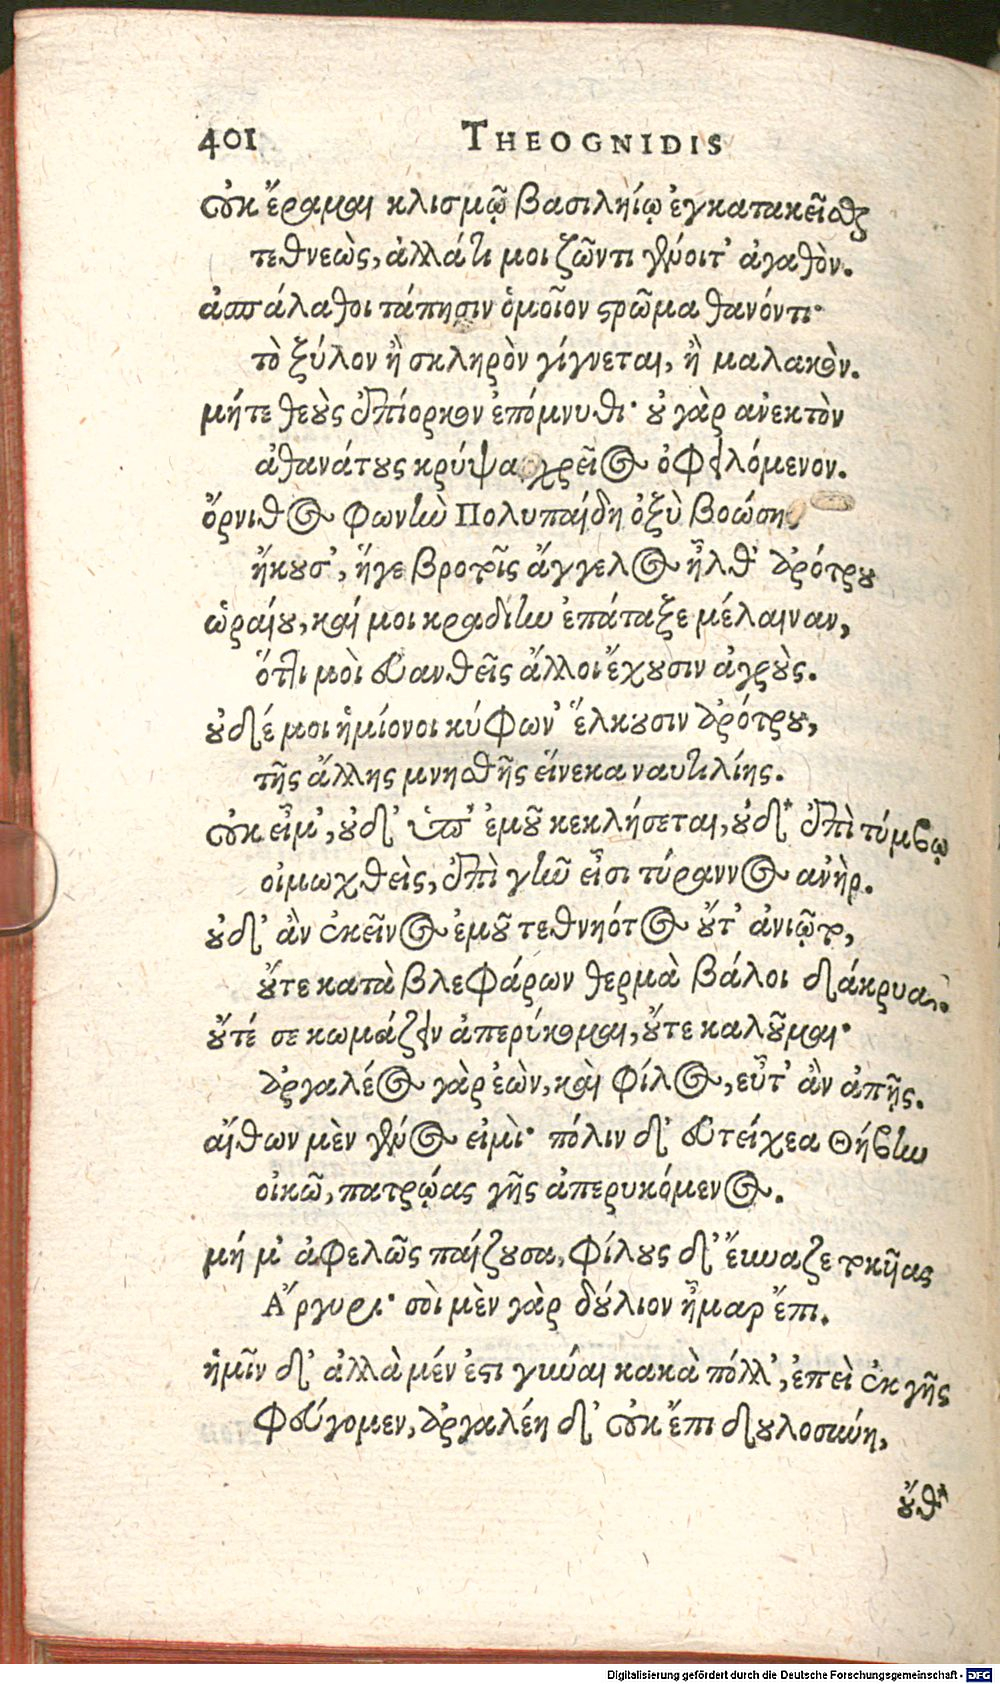 401 THEOGNIDIS
οὐκ ἔραμαι κλισμῷ βασιληΐῳ ἐγκατακεῖσθαι
τεθνεὼς, ἀλλά τι μοι ζῶντι γένοιτ' ἀγαθόν.
ἀσπάλαθοι τάπησιν ὁμοῖον στρῶμα θανόντι·
τὸ ξύλον ἢ σκληρὸν γίγνεται, ἢ μαλακόν.
μήτε θεοὺς ἐπίορκον ἐπόμνυθι· οὐ γὰρ ἀνεκτὸν
ἀθανάτους κρύψαι χρεῖος ὀφειλόμενον.
ὄρνιθος φωνὴν Πολυπαίδη ὀξὺ βοώσης
ἤκουσ', ἥγε βροτοῖς ἄγγελος ἦλθ' ἀρότρου
ὡραίου, καί μοι κραδίην ἐπάταξε μέλαιναν,
ὅττι μοὶ εὐανθεῖς ἄλλοι ἔχουσιν ἀγρούς.
οὐδέ μοι ἡμίονοι κύφων' ἕλκουσιν ἀρότρου,
τῆς ἄλλης μνησθῆς εἵνεκα ναυτιλίης.
οὐκ εἶμ', οὐδ' ὑπ' ἐμοῦ κεκλήσεται, οὐδ' ἐπὶ τύμβῳ
οἰμωχθεὶς, ἐπὶ γῆν εἶσι τύραννος ἀνήρ.
οὐδ' ἂν ἐκεῖνος ἐμοῦ τεθνηότος οὔτ' ἀνιῷτο,
οὔτε κατὰ βλεφάρων θερμὰ βάλοι δάκρυα.
οὔτέ σε κωμάζειν ἀπερύκομαι, οὔτε καλοῦμαι·
ἀργαλέος γὰρ ἐὼν, καὶ φίλος, εὖτ' ἂν ἀπῇς.
αἴθων μὲν γένος εἰμὶ· πόλιν δ' εὐτείχεα Θήβην
οἰκῶ, πατρῴας γῆς ἀπερυκόμενος.
μή μ' ἀφελῶς παίζουσα, φίλους δ' ἔνναζε τοκῆας
Ἄργυρι· σοὶ μὲν γὰρ δούλιον ἦμαρ ἔπι.
ἡμῖν δ' ἀλλὰ μέν ἐστι γύναι κακὰ πόλλ', ἐπεὶ ἐκ γῆς
φεύγομεν, ἀργαλέη δ' οὐκ ἔπι δουλοσύνη,
οὔθ'
Digitalisierung gefördert durch die Deutsche Forschungsgemeinschaft - DFG